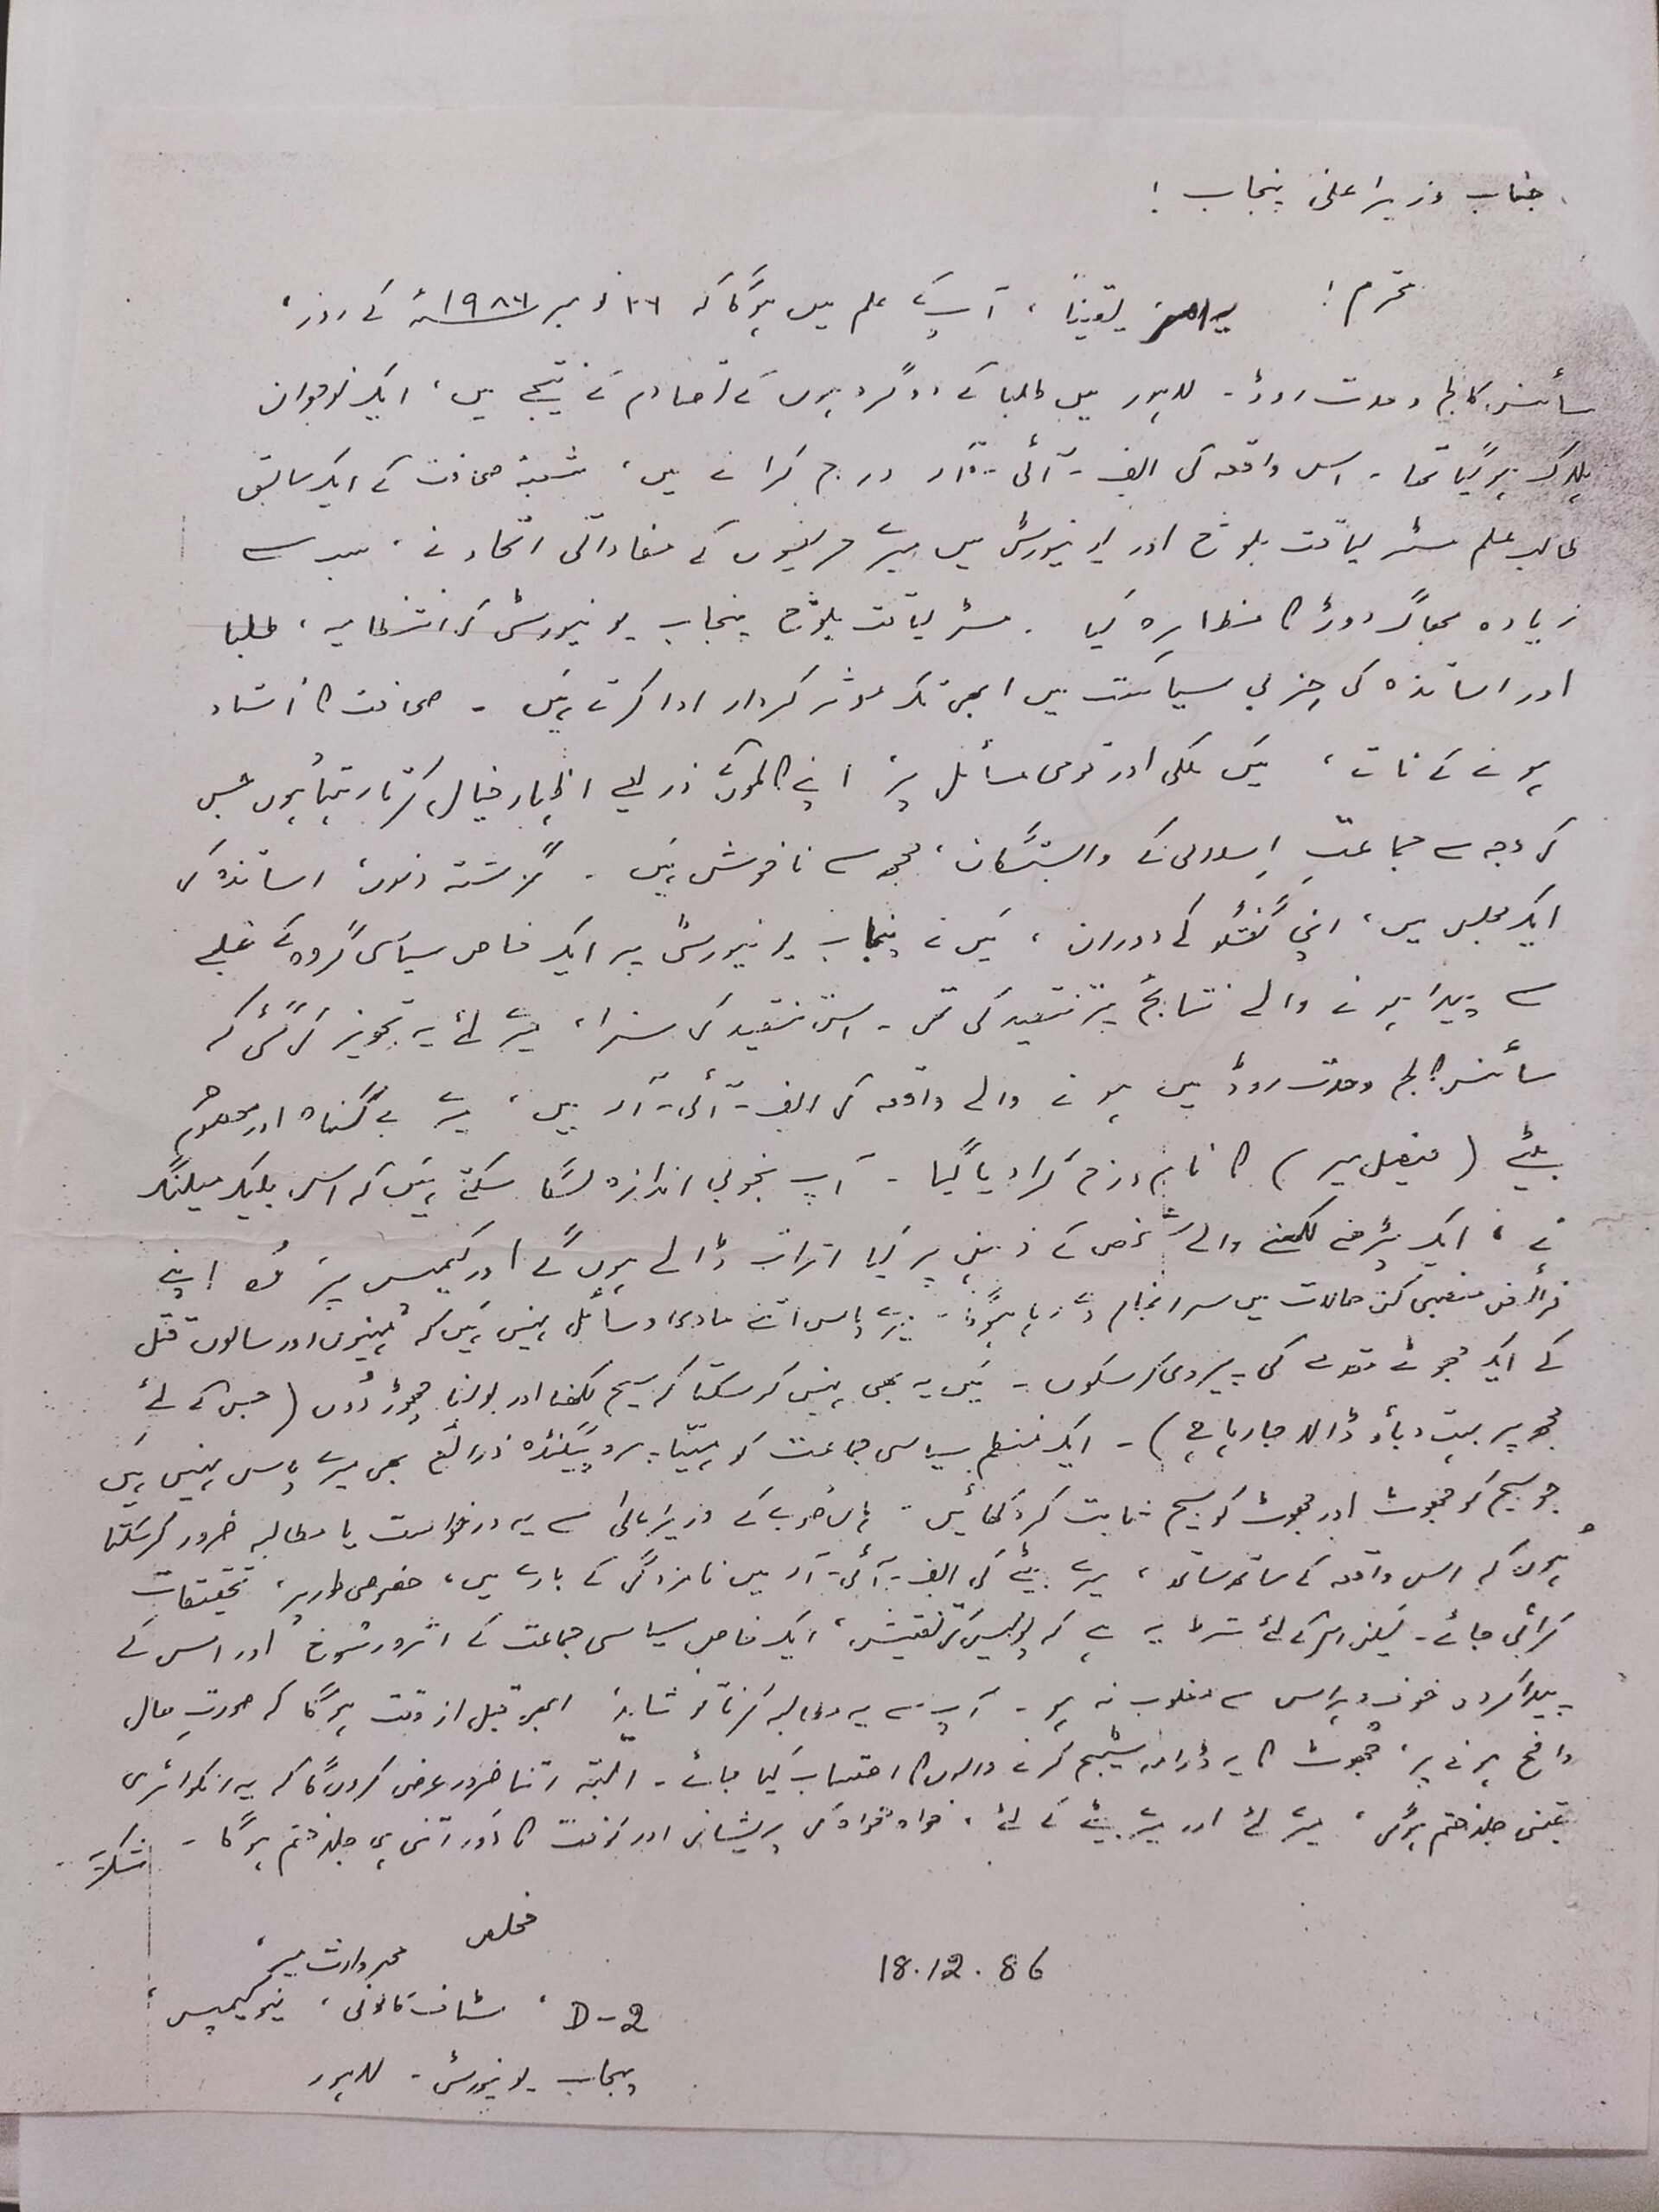 جناب وزیراعلیٰ پنجاب !
محترم ! یہ امر یقیناً ، آپ کے علم میں ہوگا کہ ۲۶ نومبر ۱۹۸۶ء کے روز ،
سائنس کالج وحدت روڈ ۔ لاہور میں طلبا کے دو گروہوں کے تصادم کے نتیجے میں ، ایک نوجوان
ہلاک ہو گیا تھا ۔ اس واقعہ کی ایف ۔ آئی ۔ آر درج کرانے میں ، شعبۂ صحافت کے ایک سابق
طالب علم مسٹر لیاقت بلوچ اور یونیورسٹی میں میرے حریفوں کے مفاداتی اتحاد نے ، سب سے
زیادہ بھاگ دوڑ کا مظاہرہ کیا ۔ مسٹر لیاقت بلوچ پنجاب یونیورسٹی کی انتظامیہ ، طلبا
اور اساتذہ کی حزبی سیاست میں ابھی تک موثر کردار ادا کرتے ہیں ۔ صحافت کا استاد
ہونے کے ناتے ، میں ملکی اور قومی مسائل پر اپنے کالموں کے ذریعے اظہار خیال کرتا رہتا ہوں جس
کی وجہ سے جماعتِ اسلامی کے وابستگان ، مجھ سے ناخوش ہیں ۔ گزشتہ دنوں ، اساتذہ کی
ایک مجلس میں ، اپنی گفتگو کے دوران ، میں نے پنجاب یونیورسٹی پر ایک خاص سیاسی گروہ کے غلبے
سے پیدا ہونے والے نتائج پر تنقید کی تھی ۔ اس تنقید کی سزا ، میرے لئے یہ تجویز کی گئی کہ
سائنس کالج وحدت روڈ میں ہونے والے واقعہ کی ایف ۔ آئی ۔ آر میں ، میرے بے گناہ اور معصوم
بیٹے ( فیصل میر ) کا نام درج کرا دیا گیا ۔ آپ بخوبی اندازہ لگا سکتے ہیں کہ اس بلیک میلنگ
نے ، ایک پڑھنے لکھنے والے شخص کے ذہن پر کیا اثرات ڈالے ہوں گے اور کیمپس پر وہ اپنے
فرائض منصبی کن حالات میں سرانجام دے رہا ہوگا ۔ میرے پاس اتنے مادی وسائل نہیں ہیں کہ مہینوں اور سالوں قتل
کے ایک جھوٹے مقدمے کی پیروی کر سکوں ۔ میں یہ بھی نہیں کر سکتا کہ سچ لکھنا اور بولنا چھوڑ دوں ( جس کے لئے
مجھ پر بہت دباؤ ڈالا جا رہا ہے ) ۔ ایک منظم سیاسی جماعت کو مہیّا پروپیگنڈہ ذرائع بھی میرے پاس نہیں ہیں
جو سچ کو جھوٹ اور جھوٹ کو سچ ثابت کر دکھائیں ۔ ہاں صوبے کے وزیراعلیٰ سے یہ درخواست یا مطالبہ ضرور کر سکتا
ہوں کہ اس واقعہ کے ساتھ ساتھ ، میرے بیٹے کی ایف ۔ آئی ۔ آر میں نامزدگی کے بارے میں ، خصوصی طور پر ، تحقیقات
کرائی جائے ۔ لیکن اس کے لئے شرط یہ ہے کہ پولیس کی تفتیش ، ایک خاص سیاسی جماعت کے اثر و رسوخ اور اس کے
پیدا کردہ خوف و ہراس سے مغلوب نہ ہو ۔ آپ سے یہ مطالبہ کرنا تو شاید ابھی قبل از وقت ہوگا کہ صورتِ حال
واضح ہونے پر ، جھوٹ کا یہ ڈرامہ سٹیج کرنے والوں کا احتساب کیا جائے ۔ البتہ اتنا ضرور عرض کروں گا کہ یہ انکوائری
جتنی جلد ختم ہوگی ، میرے لئے اور میرے بیٹے کے لئے ، خواہ مخواہ کی پریشانی اور کوفت کا دور اتنی ہی جلد ختم ہوگا ۔ شکریہ
مخلص
محمد وارث میر ،
18.12.86
D-2 ، سٹاف کالونی ، نیو کیمپس ،
پنجاب یونیورسٹی ۔ لاہور